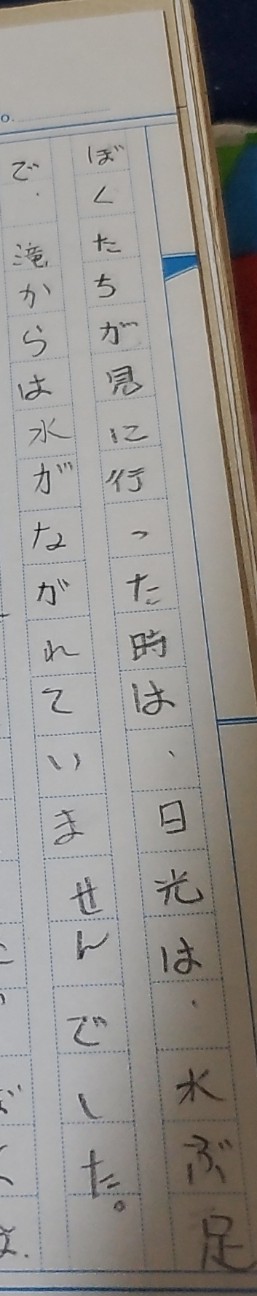 ぼくたちが見に行った時は、日光は、水ぶ足
で、滝からは水がながれていませんでした。